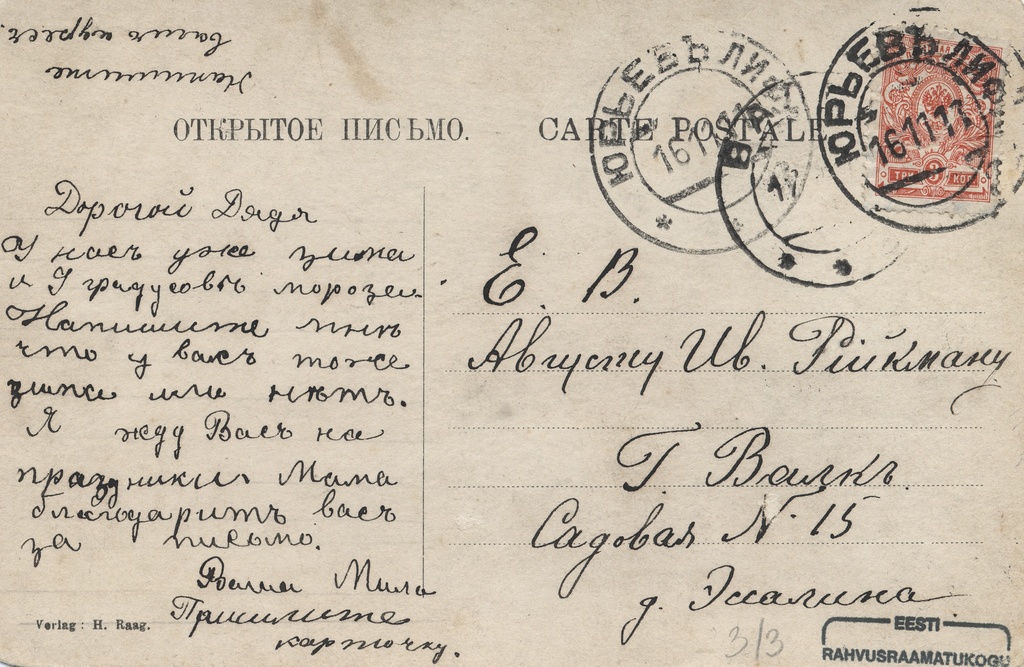 Напишите
вашъ адресъ
ОТКРЫТОЕ ПИСЬМО. CARTE POSTALE
ЮРЬЕВЪ ЛИФ
16 11 11
ЮРЬЕВЪ ЛИФ
16 11 11
ТРИ 3 КОП
Дорогой Дядя
У насъ уже зима
и 9 градусовъ морозу.
Напишите мнѣ
что у васъ тоже
зима или нѣтъ.
Я жду Васъ на
праздники. Мама
благодаритъ васъ
за письмо.
Ваша Мила
Пришлите
карточку.
Е. В.
Августу Ив. Рійкману
Г. Валкъ.
Садовая № 15
д. Эсалина
Verlag: H. Raag.
3/3
EESTI
RAHVUSRAAMATUKOGU